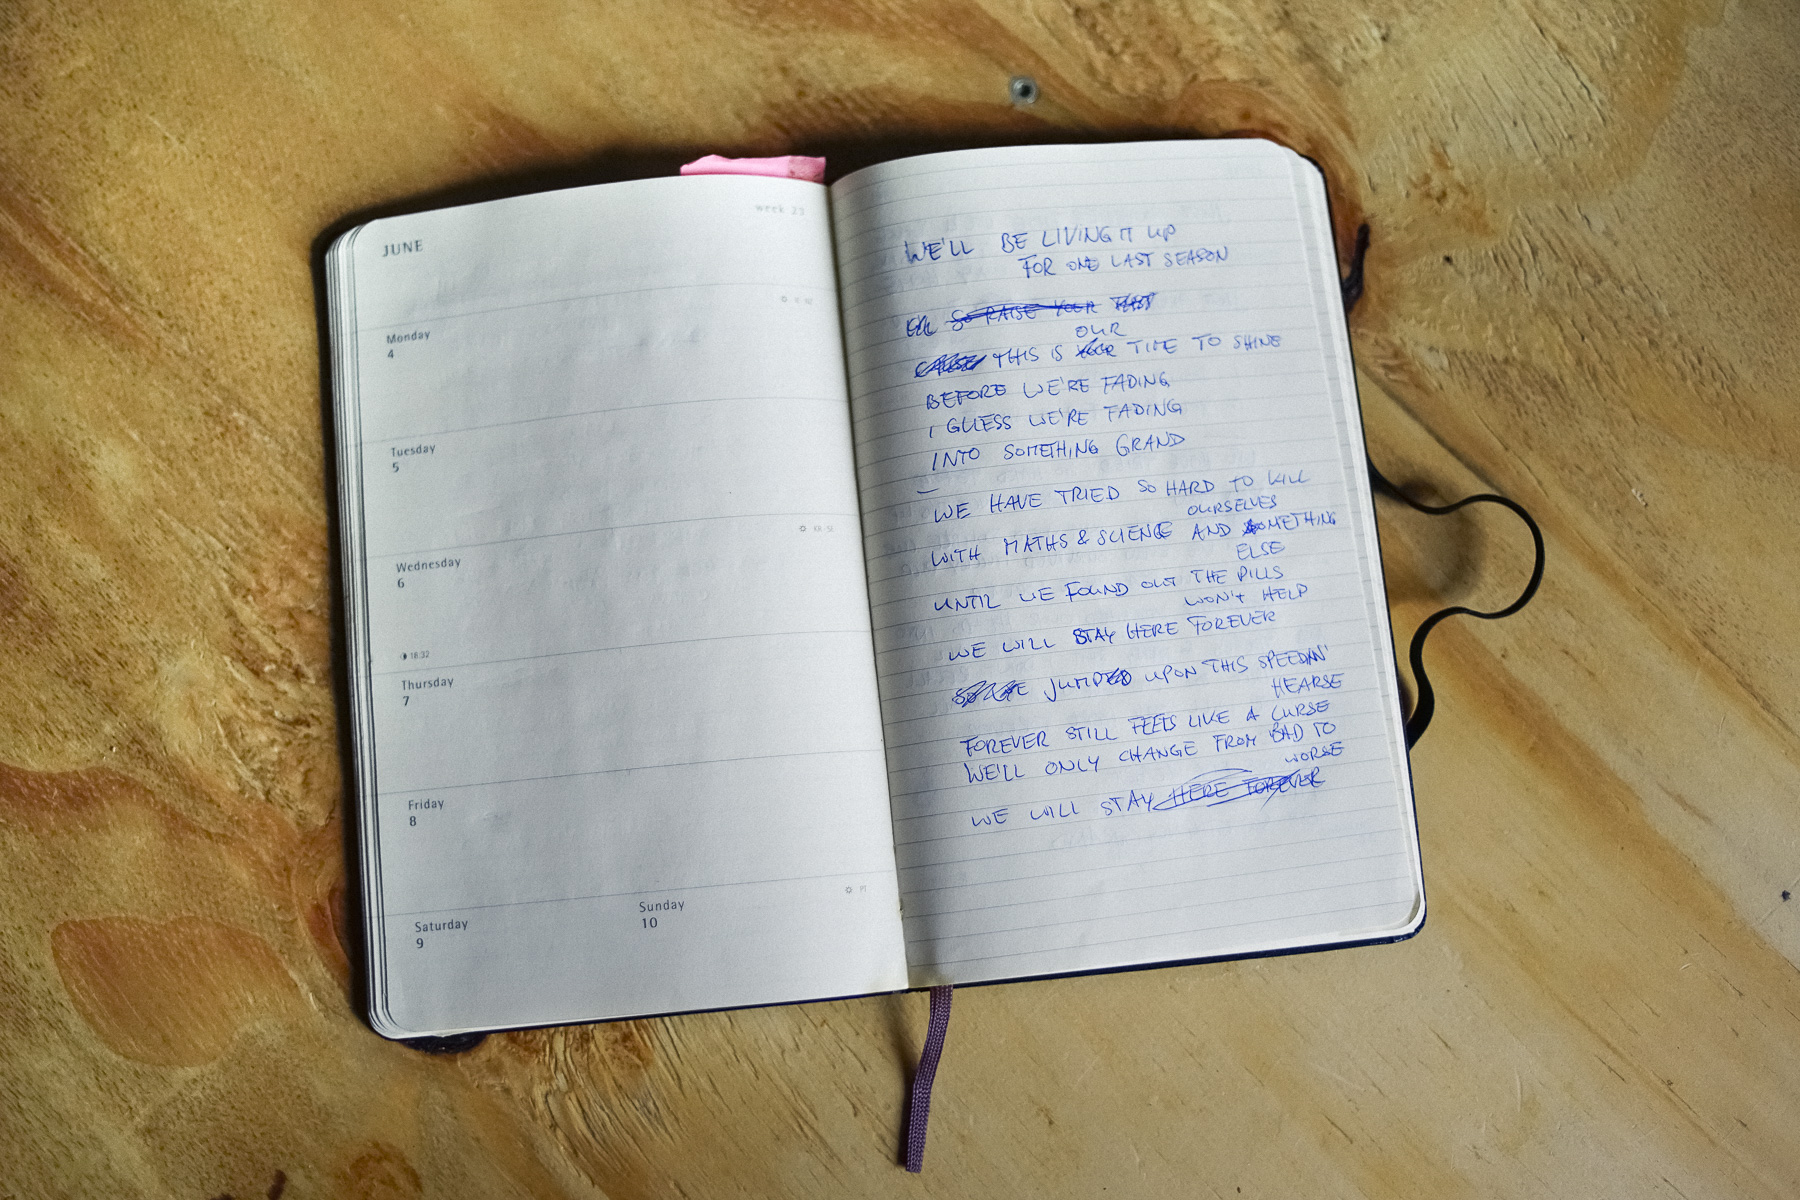 week 23
JUNE
Monday
4
Tuesday
5
Wednesday
6
18:32
Thursday
7
Friday
8
Saturday
9
Sunday
10
WE'LL BE LIVING IT UP
FOR ONE LAST SEASON
SO RAISE YOUR
OUR
THIS IS YOUR TIME TO SHINE
BEFORE WE'RE FADING
I GUESS WE'RE FADING
INTO SOMETHING GRAND
—
WE HAVE TRIED SO HARD TO KILL
OURSELVES
WITH MATHS & SCIENCE AND SOMETHING
ELSE
UNTIL WE FOUND OUT THE PILLS
WON'T HELP
WE WILL STAY HERE FOREVER
JUMPED UPON THIS SPEEDIN'
HEARSE
FOREVER STILL FEELS LIKE A CURSE
WE'LL ONLY CHANGE FROM BAD TO
WORSE
WE WILL STAY HERE FOREVER